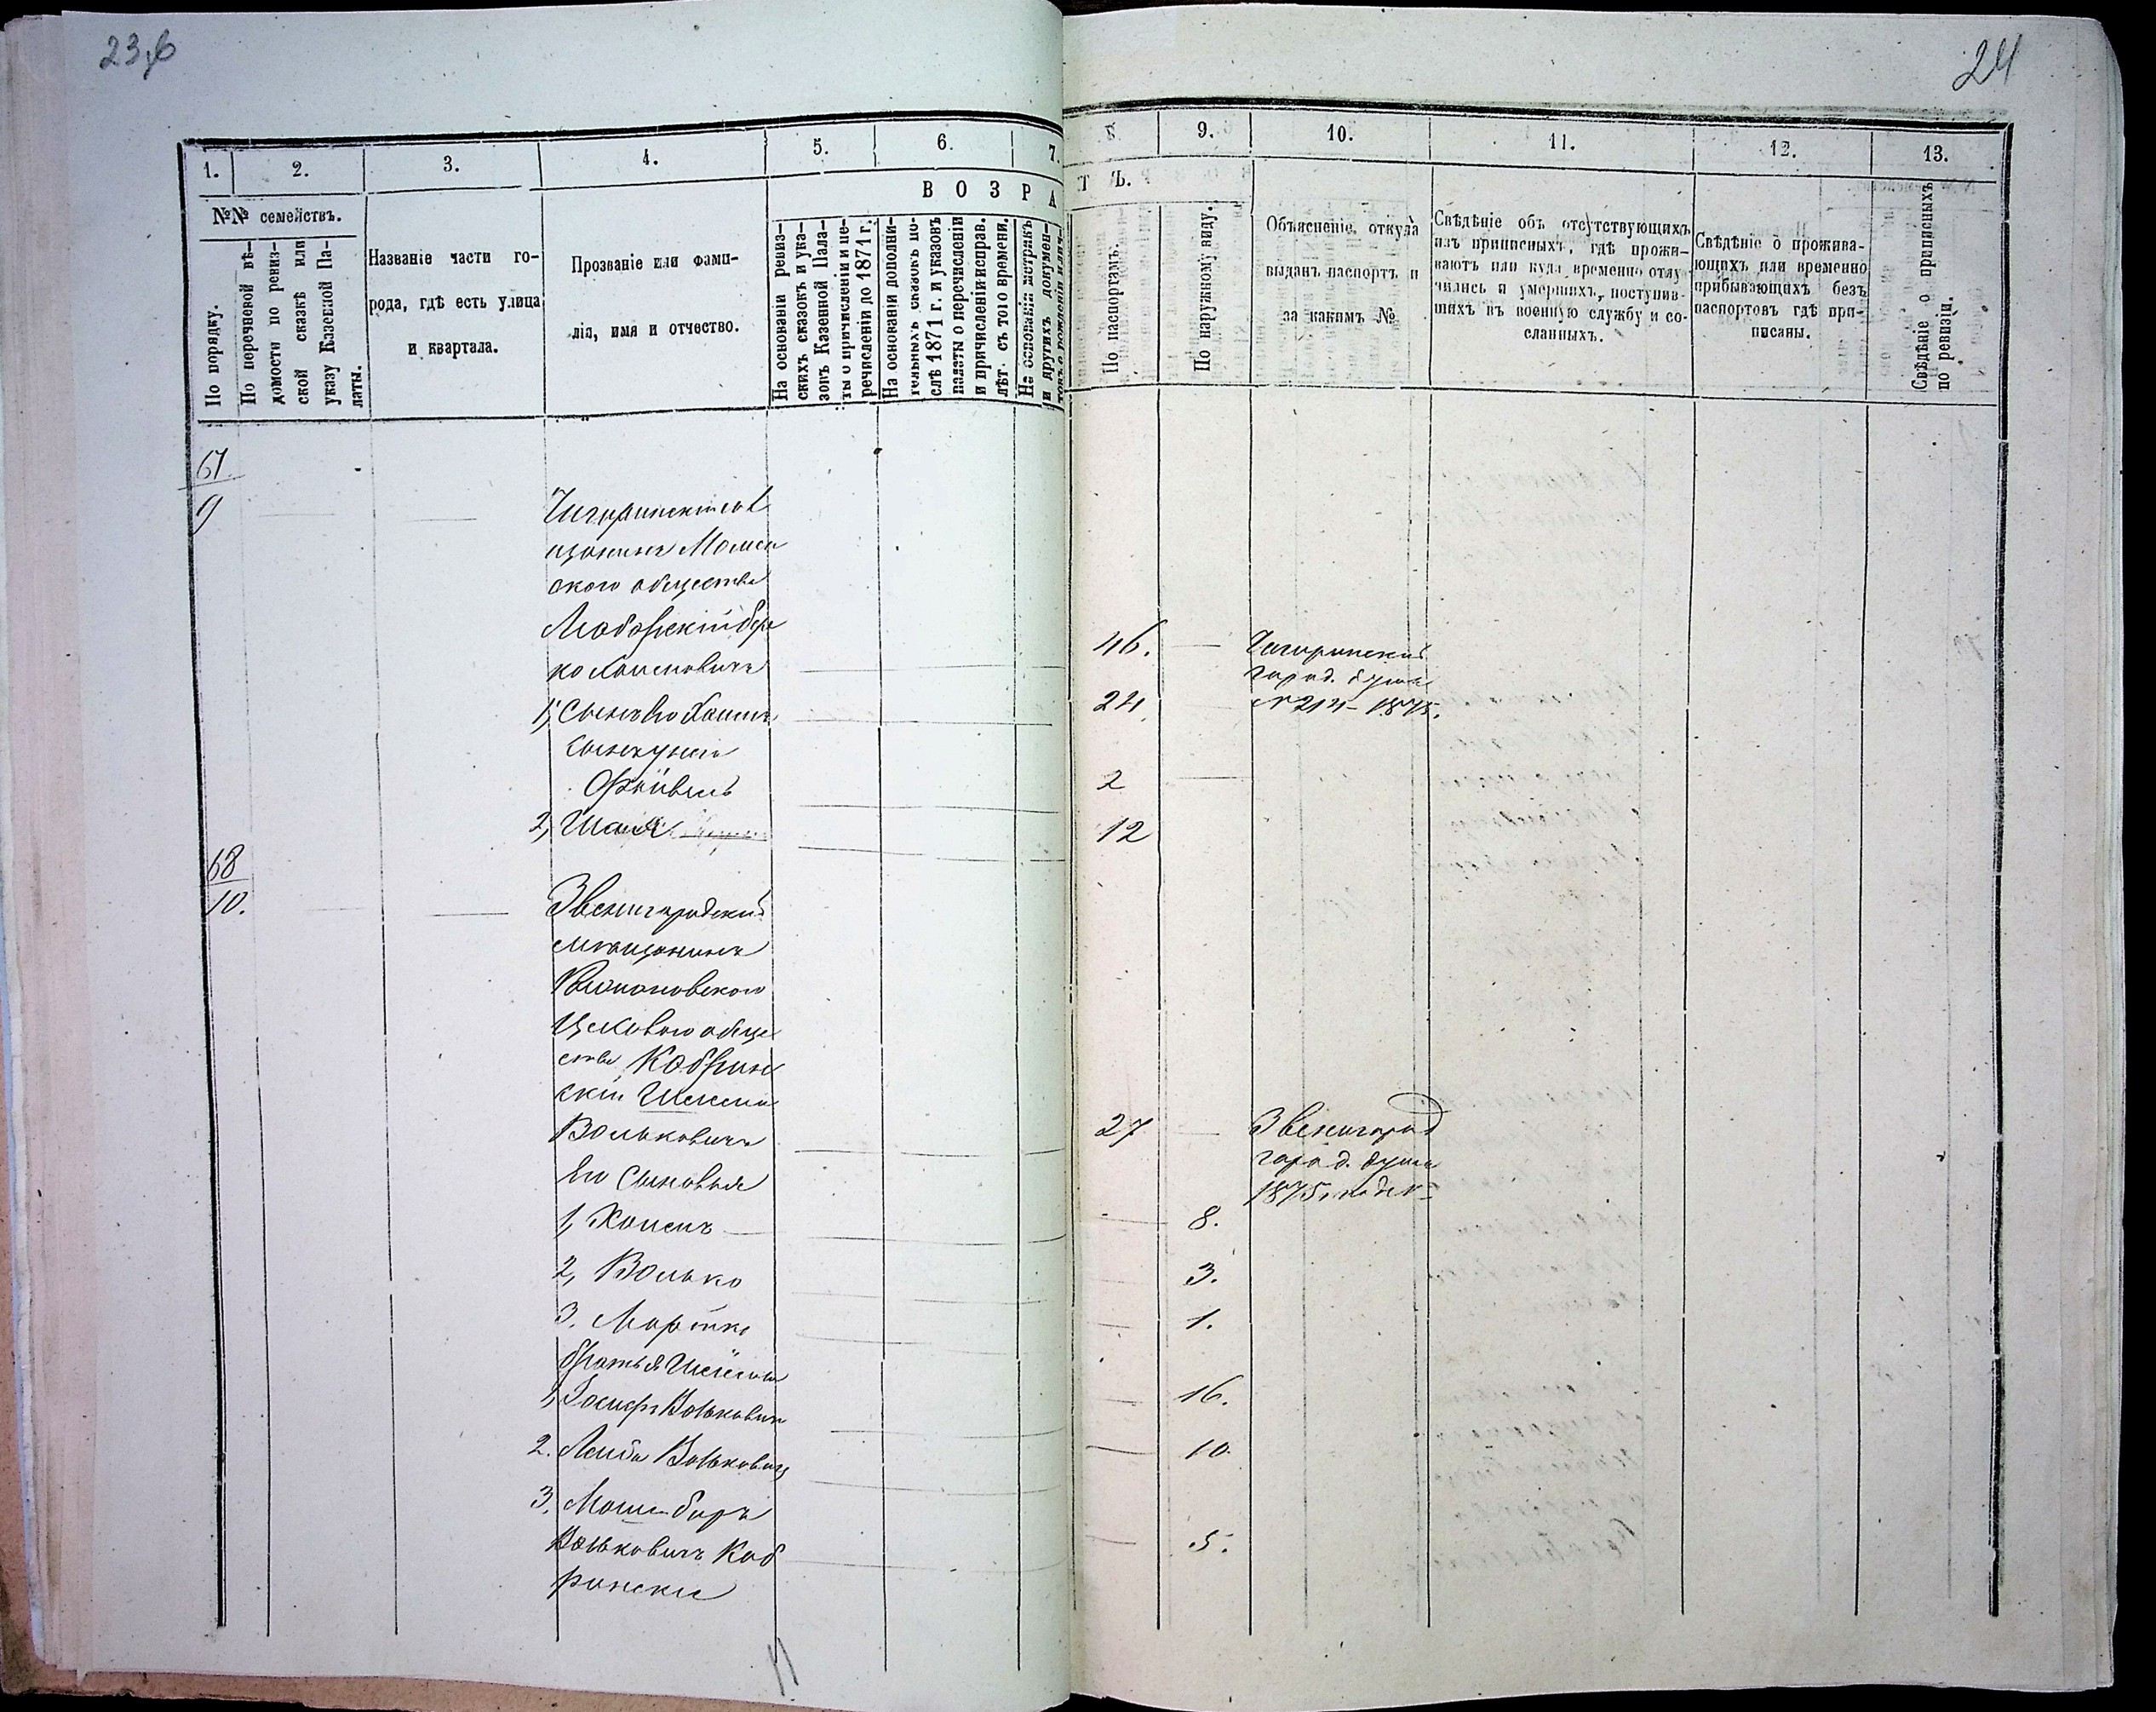 23 об
24
1.
2.
3.
4.
5.
6.
7.
8.
9.
10.
11.
12.
13.
№№ семействъ.
ВОЗРА
ТЪ.
По порядку.
По перечневой вѣ-
домости по ревиз-
ской сказкѣ или
указу Казенной Па-
латы.
Названіе части го-
рода, гдѣ есть улица
и квартала.
Прозваніе или фами-
лія, имя и отчество.
На основаніи ревиз-
скихъ сказокъ и ука-
зовъ Казенной Пала-
ты о причисленіи и пе-
речисленіи до 1871 г.
На основаніи дополни-
тельныхъ сказокъ по-
слѣ 1871 г. и указовъ
палаты о перечисленіи
и причисленіи исправ.
лѣт. съ того времени.
На основаніи метрикъ
и другихъ докумен-
товъ о рожденіи или
По паспортамъ.
По наружному виду.
Объясненіе, откуда
выданъ паспортъ и
за какимъ №
Свѣдѣніе объ отсутствующихъ
изъ приписныхъ, гдѣ прожи-
ваютъ или куда временно отлу-
чились и умершихъ, поступив-
шихъ въ военную службу и со-
сланныхъ.
Свѣдѣніе о прожива-
ющихъ или временно
прибывающихъ безъ
паспортовъ гдѣ при-
писаны.
Свѣдѣніе о приписныхъ
по ревизіи.
67
9
Чигиринскій мѣ
щанинъ
ского общества
ко Хаимовичъ
46.
Чигиринской
город. думы
1, Сынъ его Хаимъ
24
№ 214 – 1875.
Файвель
2
2, Шая
12
68
10.
Звенигородскій
мѣщанинъ
обще
ства Кобрин
скій
Вольковичъ
27
Звенигород
город. думы
1875
Его сыновья
1, Хаимъ
8.
2, Волько
3.
3. Мортко
1.
братья
1, Іосифъ Вольковичъ
16.
2. Лейба Вольковичъ
10
3. Мошко Беръ
Вольковичъ Коб
5.
ринскіе